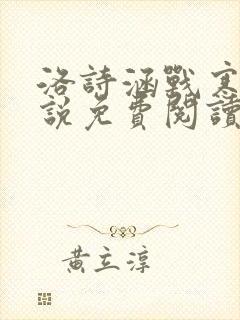 洛詩涵戰寒
說免費閱讀
黃立淳